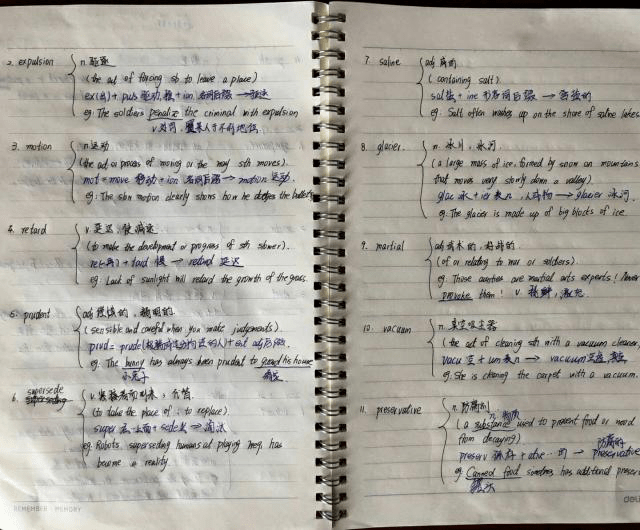 2. expulsion n. 驱逐
(the act of forcing sb to leave a place)
ex(出) + puls 驱动 + ion 名词后缀 → 驱逐
eg: The soldiers penalize the criminal with expulsion
v. 处罚
3. motion n. 运动
(the act or process of moving or the way sth moves)
mot = move 移动 + ion 名词后缀 → motion 运动
eg: The slow motion clearly shows how he dodges the bullets
4. retard v. 延迟, 使减速
(to make the development or progress of sth slower).
+ tard 慢 → retard 延迟
eg: Lack of sunlight will retard the growth of the grass.
5. prudent adj. 谨慎的, 精明的
(sensible and careful when you make judgments).
prud = + ent adj 后缀
eg: The bunny has always been prudent to guard his house
小兔子
6. supersede v.
(to take the place of; to replace).
super
eg: Robots superseding humans at playing has
become a reality.
REMEMBER · MEMORY
7. saline adj. 盐的
(containing salt).
sal 盐 + ine 形容词后缀 → 含盐的
eg: Salt often washes up on the shore of saline lakes
8. glacier n. 冰川, 冰河.
(a large mass of ice, formed by snow on mountains
that moves very slowly down a valley)
glac 冰 + ier → glacier 冰河
eg: The glacier is made up of big blocks of ice.
9. martial adj.
(of or relating to war or soldiers).
eg: These are martial arts experts! Never
provoke them! v. 挑衅, 激怒.
10. vacuum n. 真空吸尘器
(the act of cleaning sth with a vacuum cleaner)
vacu 空 + um 表n → vacuum
eg: She is cleaning the carpet with a vacuum.
11. preservative n. 防腐剂
n. 物质
(a substance used to prevent food or wood
from decaying)
preserv + ative → preservative
eg: Canned food sometimes has additional
deli